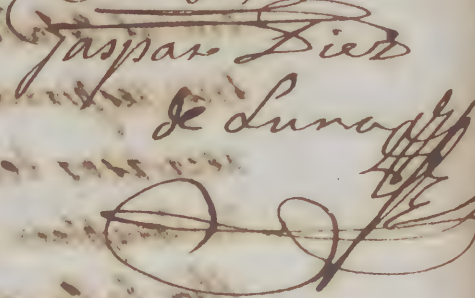 Gaspar Diez
de Luna